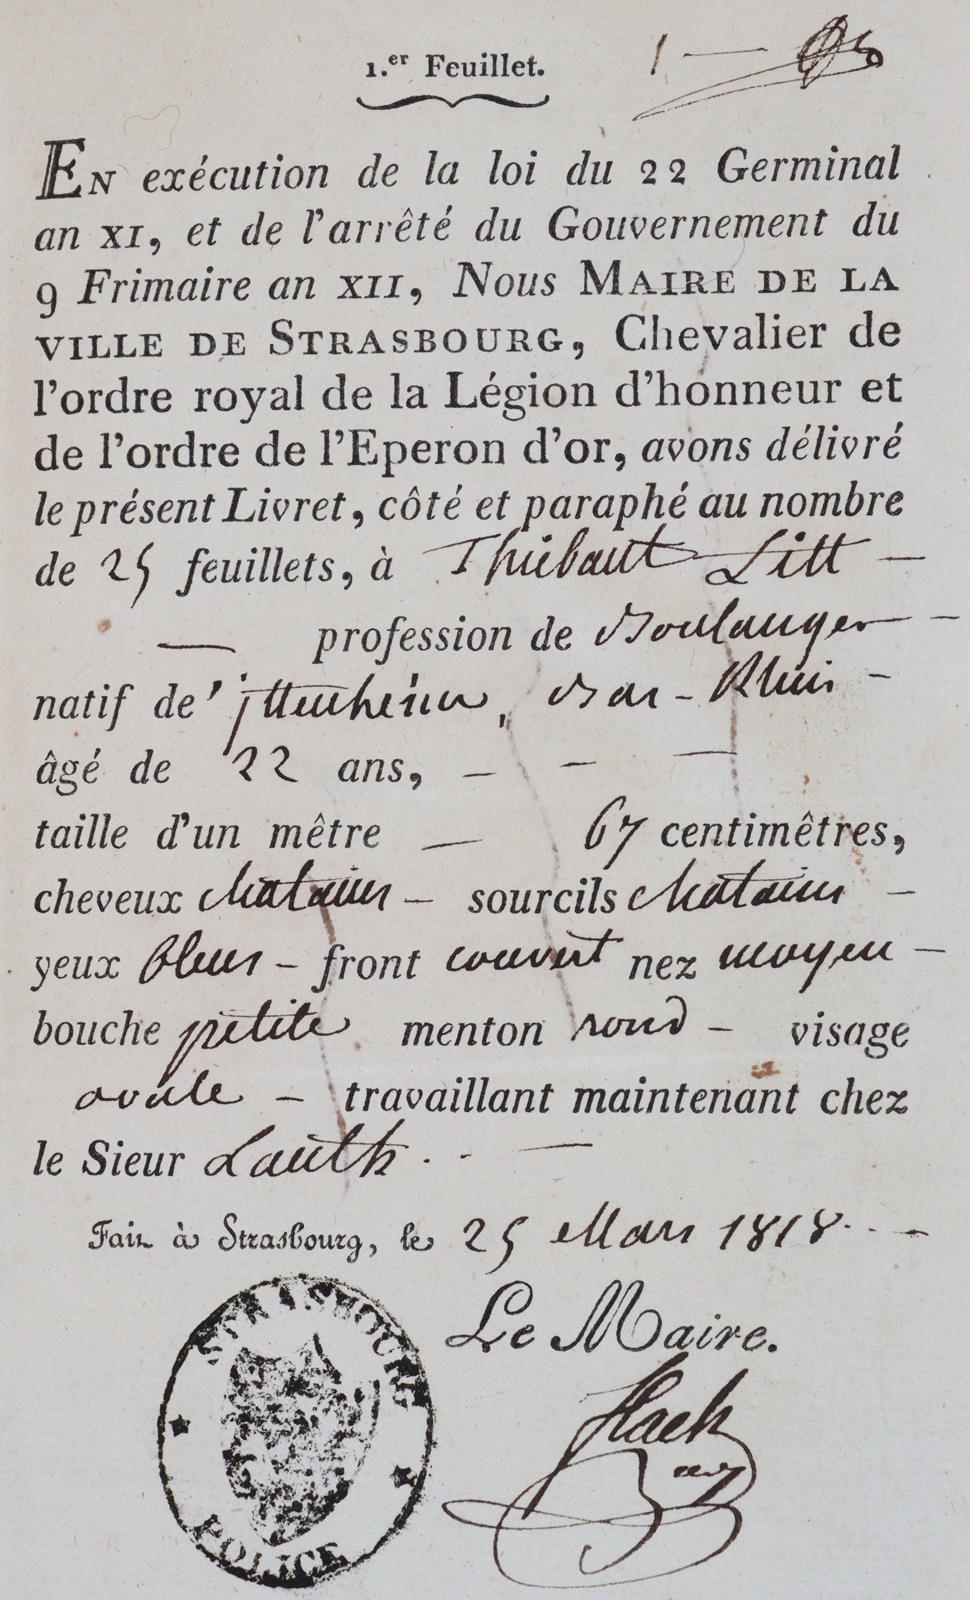 1.er Feuillet. 1
En exécution de la loi du 22 Germinal
an XI, et de l'arrêté du Gouvernement du
9 Frimaire an XII, Nous Maire de la
ville de Strasbourg, Chevalier de
l'ordre royal de la Légion d'honneur et
de l'ordre de l'Eperon d'or, avons délivré
le présent Livret, côté et paraphé au nombre
de 25 feuillets, à Thiebaut Litt —
— profession de Boulanger —
natif de ittenheim, Bas-Rhin —
âgé de 22 ans, — — —
taille d'un mètre — 67 centimètres,
cheveux chatains — sourcils chatains —
yeux bleus — front couvert nez moyen —
bouche petite menton rond — visage
ovale — travaillant maintenant chez
le Sieur Lauth. —
Fait à Strasbourg, le 25 Mars 1818. —
Le Maire.
STRASBOURG
POLICE